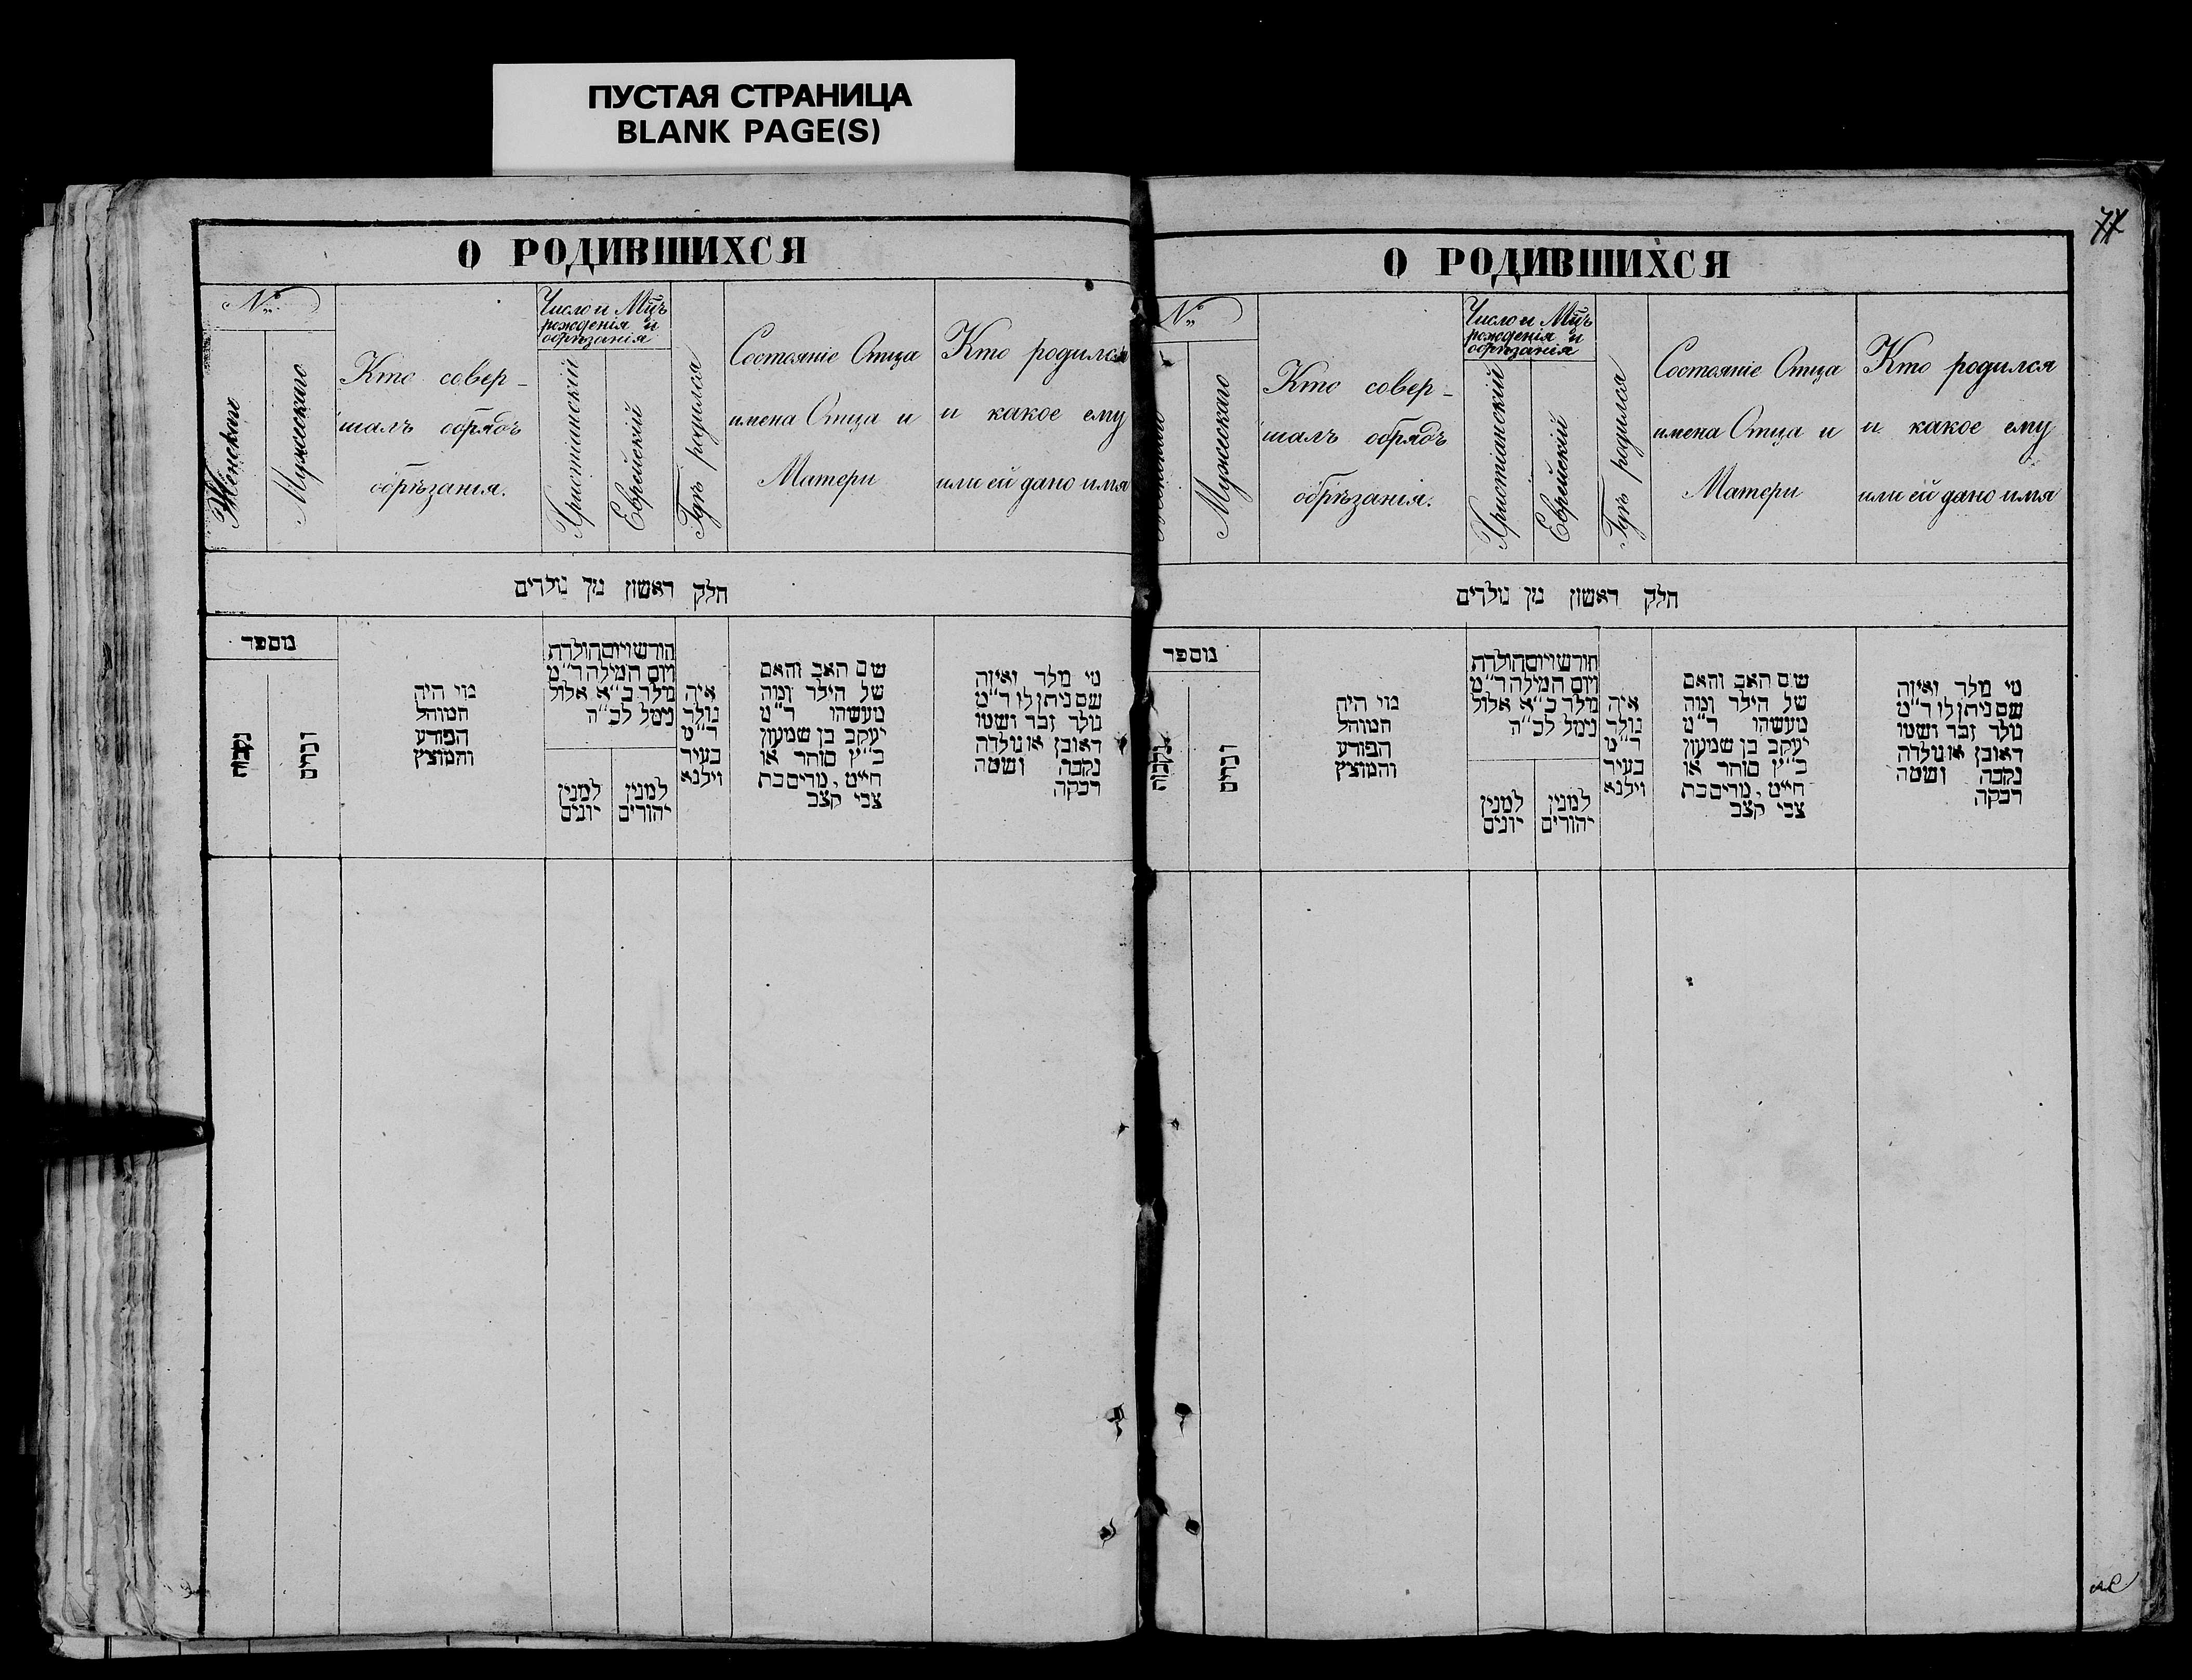 ПУСТАЯ СТРАНИЦА
BLANK PAGE(S)
О РОДИВШИХСЯ
№
Женскаго
Мужескаго
Кто совер-
шалъ обрядъ
обрѣзанія.
Число и Мцъ
рожденія и
обрѣзанія
Христіанскій
Еврейскій
Гдѣ родился
Состояніе Отца
имена Отца и
Матери
Кто родился
и какое ему
или ей дано имя
חלק ראשון מן נולדים
מספר
נקבות
זכרים
מי היה
המוהל
הפורע
והמוצץ
חודש ויום הולדת
ויום המילה ר"מ
מלד כ"א אלול
נימל לכ"ה
למנין
יונים
למנין
יהודים
איה
נולד
ר"מ
בעיר
וילנא
שם האב והאם
של הילד ומה
מעשהו ר"מ
יעקב בן שמעון
כ"ץ סוחר או
חייט, מרים בת
צבי קצב
מי מלד ואיזה
שם ניתן לו ר"מ
נולד זכר ושמו
ראובן או נולדה
נקבה ושמה
רבקה
О РОДИВШИХСЯ
№
Мужескаго
Кто совер-
шалъ обрядъ
обрѣзанія.
Число и Мцъ
рожденія и
обрѣзанія
Христіанскій
Еврейскій
Гдѣ родился
Состояніе Отца
имена Отца и
Матери
Кто родился
и какое ему
или ей дано имя
חלק ראשון מן נולדים
מספר
נקבות
זכרים
מי היה
המוהל
הפורע
והמוצץ
חודש ויום הולדת
ויום המילה ר"מ
מלד כ"א אלול
נימל לכ"ה
למנין
יונים
למנין
יהודים
איה
נולד
ר"מ
בעיר
וילנא
שם האב והאם
של הילד ומה
מעשהו ר"מ
יעקב בן שמעון
כ"ץ סוחר או
חייט, מרים בת
צבי קצב
מי מלד ואיזה
שם ניתן לו ר"מ
נולד זכר ושמו
ראובן או נולדה
נקבה ושמה
רבקה